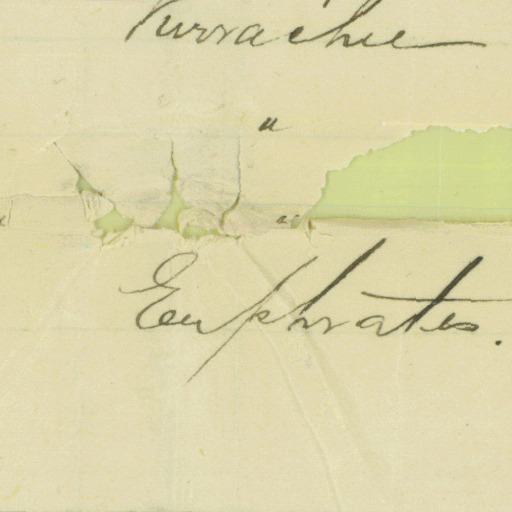 Kurrachee
"
"
Euphrates.